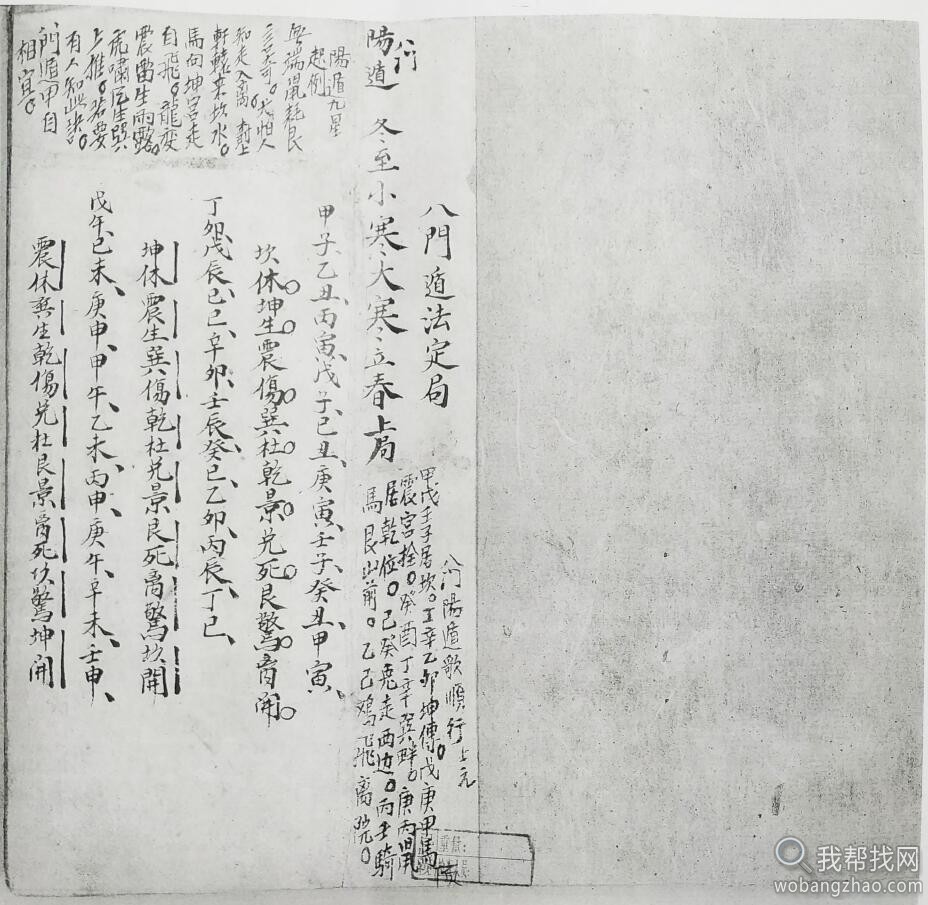 八門遁法定局
八门陽遁歌順行上元
甲戊壬子居坎。丁辛乙卯坤傳。戊庚甲馬
震宮拴。癸酉丁辛巽畔。庚丙鼠
居乾位。己癸兎走西边。丙壬騎
馬艮山前。乙己鸡飛离院。
八门
陽遁 冬至小寒大寒立春上局
甲子、乙丑、丙寅、戊子、己丑、庚寅、壬子、癸丑、甲寅、
坎休坤生震傷巽杜乾景兑死艮驚离開
丁卯、戊辰、己巳、辛卯、壬辰、癸巳、乙卯、丙辰、丁巳、
坤休震生巽傷乾杜兑景艮死离驚坎開
戊午、己未、庚申、甲午、乙未、丙申、庚午、辛未、壬申、
震休巽生乾傷兑杜艮景离死坎驚坤開
陽遁九星
起例
鼠耗艮
三
知走入离
軒轅来坎水。
馬向坤宮走
自飛。龍变
震雷生雨露。
虎嘯風生巽
上推。若要
有人知此訣。
门遁甲自
相宜。
我帮找网
wobangzhao.com